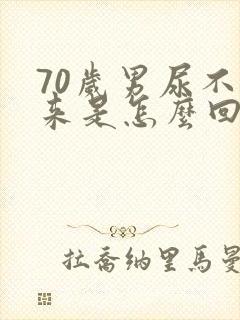 70歲男尿不
來是怎麼回
拉喬納里馬曼